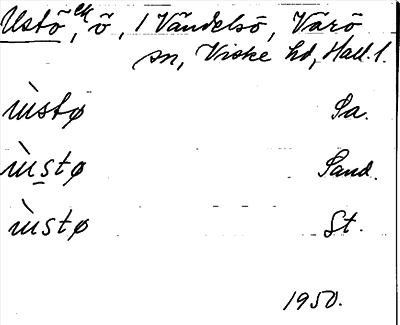 Ustö, en ö, i Vändelsö, Värö
sn, Viske hd, Hall. l.
ùstø Sa.
ùs̱tø Sand.
ùstø St.
1950.